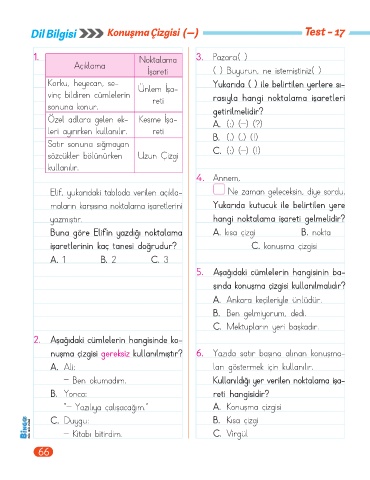 Dil Bilgisi
Konuşma Çizgisi (—)
Test - 17
1.
Açıklama
Noktalama
İşareti
Korku, heyecan, se-
vinç bildiren cümlelerin
sonuna konur.
Ünlem İşa-
reti
Özel adlara gelen ek-
leri ayırırken kullanılır.
Kesme İşa-
reti
Satır sonuna sığmayan
sözcükler bölünürken
kullanılır.
Uzun Çizgi
Elif, yukarıdaki tabloda verilen açıkla-
maların karşısına noktalama işaretlerini
yazmıştır.
Buna göre Elif'in yazdığı noktalama
işaretlerinin kaç tanesi doğrudur?
A. 1 B. 2 C. 3
2. Aşağıdaki cümlelerin hangisinde ko-
nuşma çizgisi gereksiz kullanılmıştır?
A. Ali:
— Ben okumadım.
B. Yonca:
"— Yazılıya çalışacağım."
C. Duygu:
— Kitabı bitirdim.
3. Pazara( )
( ) Buyurun, ne istemiştiniz( )
Yukarıda ( ) ile belirtilen yerlere sı-
rasıyla hangi noktalama işaretleri
getirilmelidir?
A. (:) (—) (?)
B. (.) (.) (!)
C. (:) (—) (!)
4. Annem,
Ne zaman geleceksin, diye sordu.
Yukarıda kutucuk ile belirtilen yere
hangi noktalama işareti gelmelidir?
A. kısa çizgi B. nokta
C. konuşma çizgisi
5. Aşağıdaki cümlelerin hangisinin ba-
şında konuşma çizgisi kullanılmalıdır?
A. Ankara keçileriyle ünlüdür.
B. Ben gelmiyorum, dedi.
C. Mektupların yeri başkadır.
6. Yazıda satır başına alınan konuşma-
ları göstermek için kullanılır.
Kullanıldığı yer verilen noktalama işa-
reti hangisidir?
A. Konuşma çizgisi
B. Kısa çizgi
C. Virgül
66